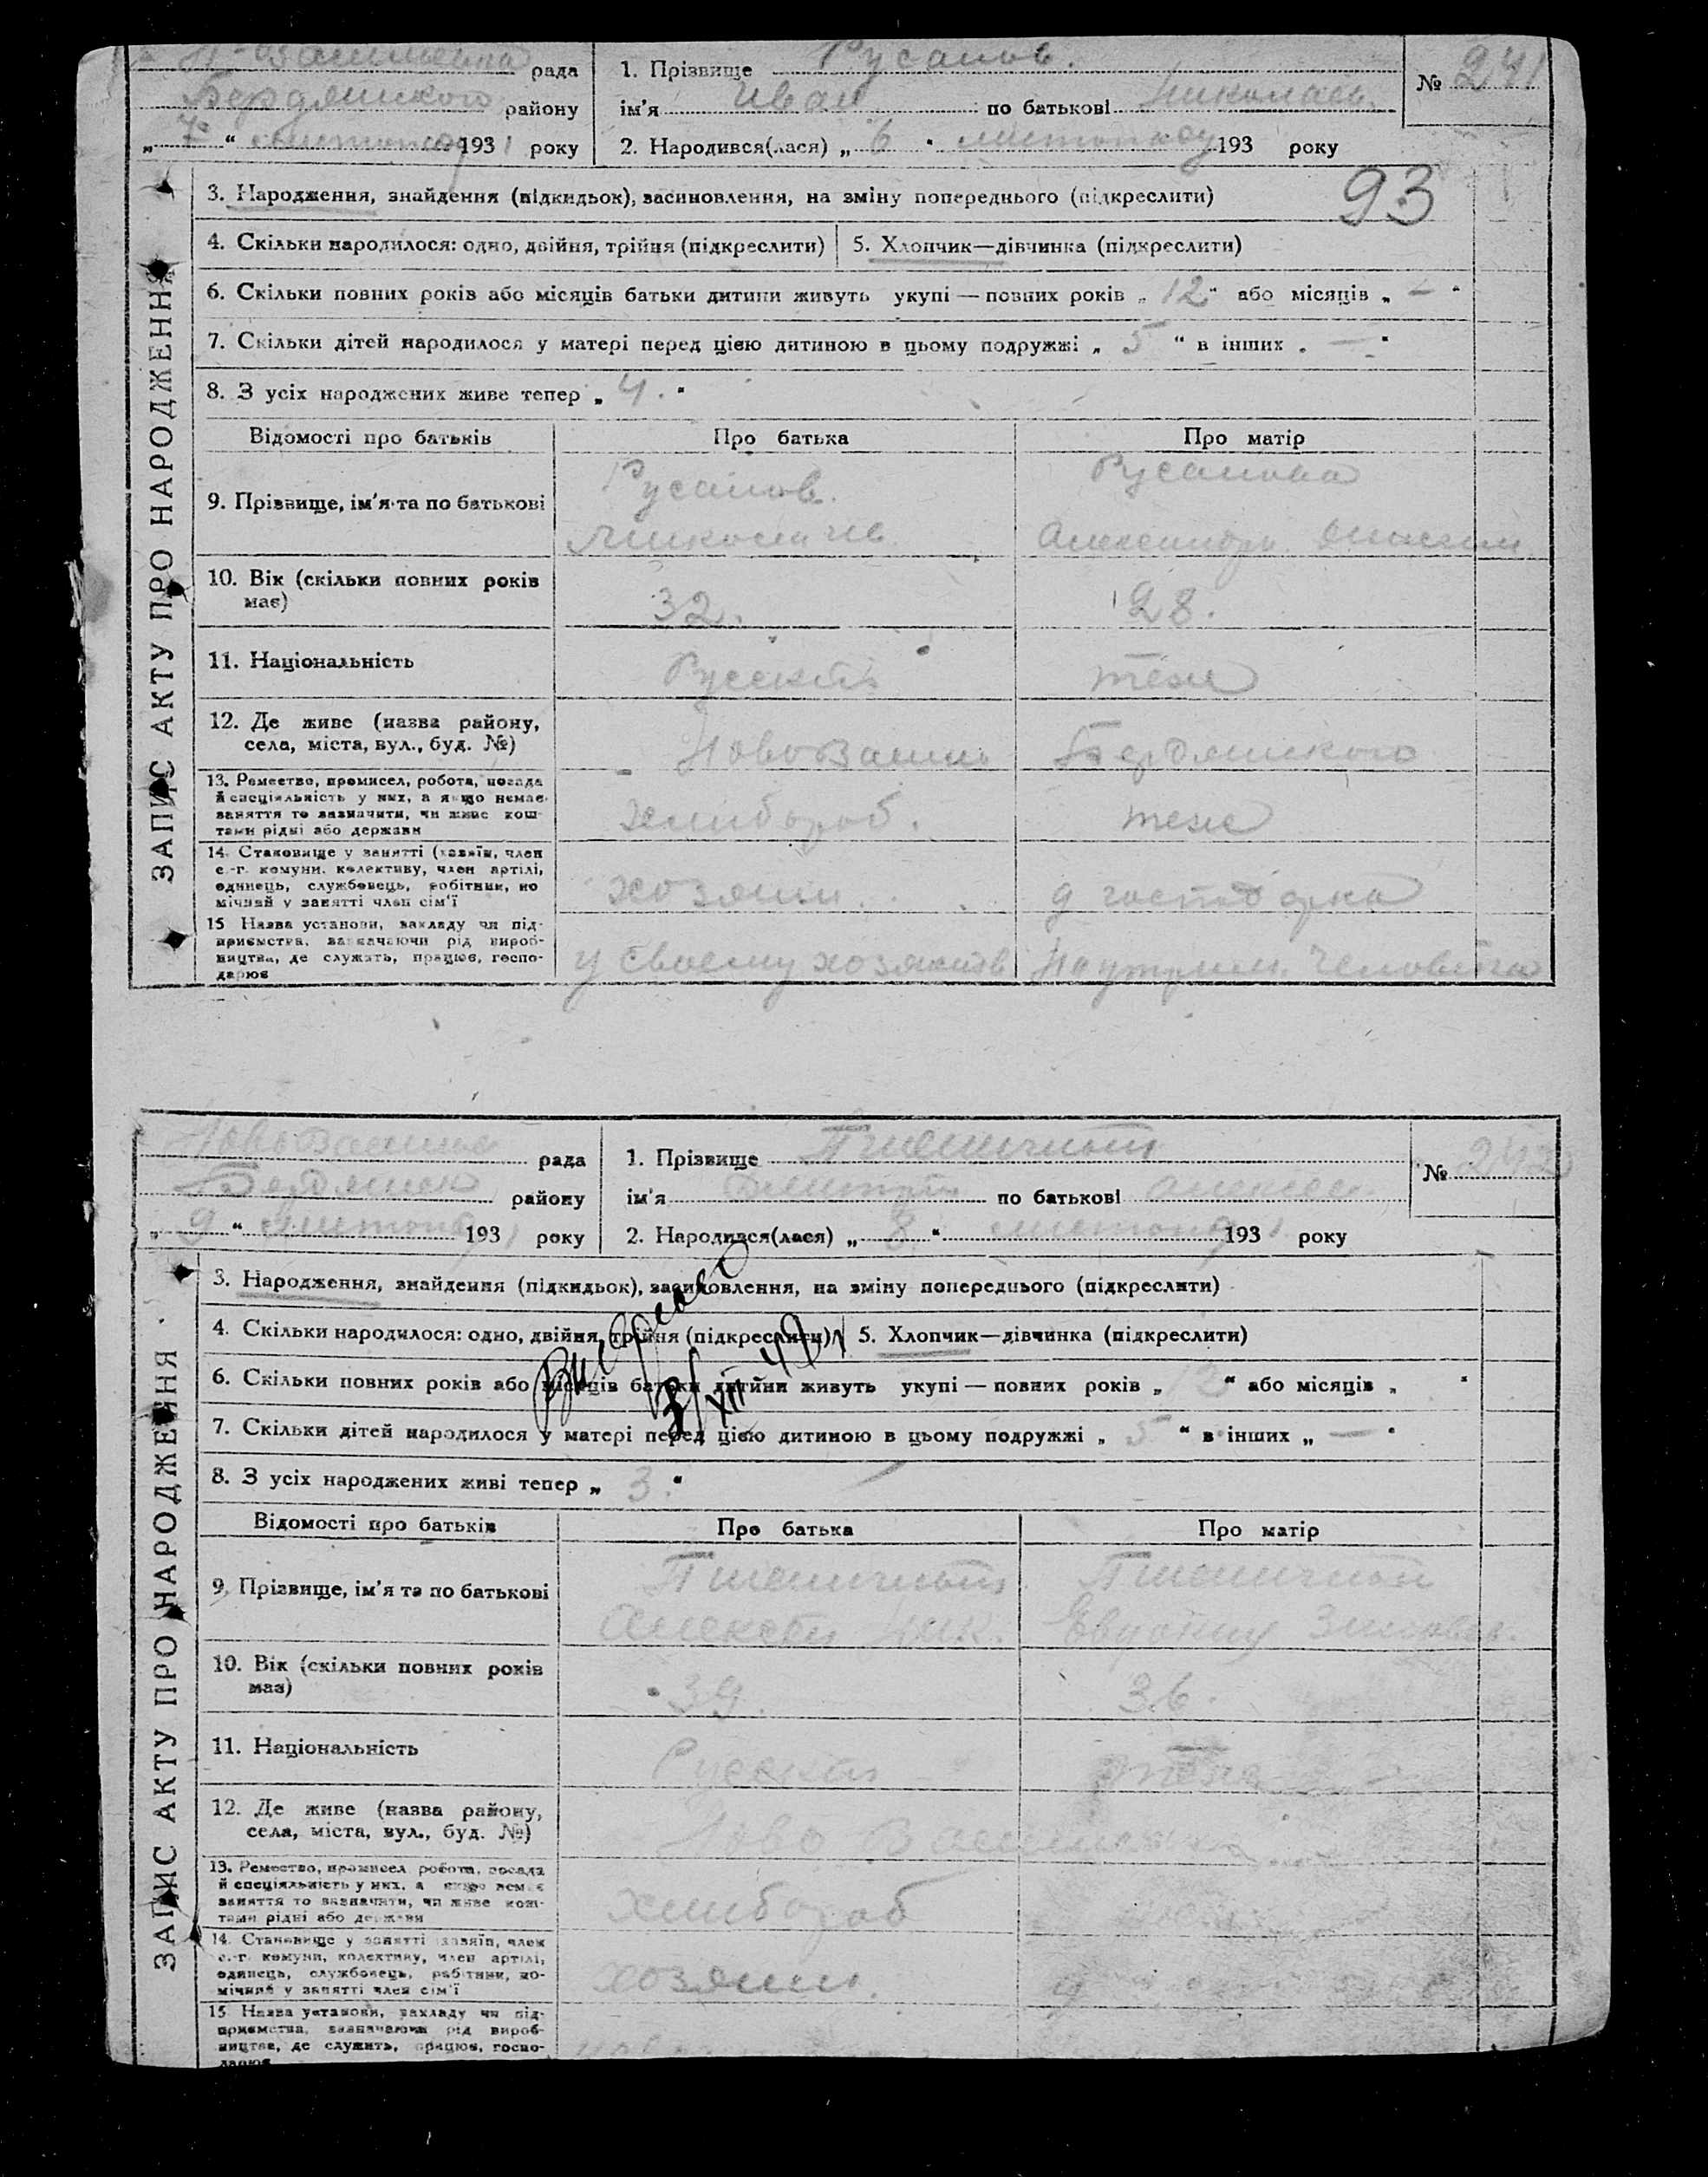 рада
Бердянського району
„ 7 “ листопад 1931 року
1. Прізвище Русанов.
ім'я Иван по батькові Николаев.
2. Народився(лася) „ 6 “ листопаду 193 року
№ 241
93
ЗАПИС АКТУ ПРО НАРОДЖЕННЯ
3. Народження, знайдення (підкидьок), засиновлення, на зміну попереднього (підкреслити)
4. Скільки народилося: одно, двійня, трійня (підкреслити)
5. Хлопчик—дівчинка (підкреслити)
6. Скільки повних років або місяців батьки дитини живуть укупі — повних років „ 12 “ або місяців „ — “
7. Скільки дітей народилося у матері перед цією дитиною в цьому подружжі „ 5 “ в інших „ — “
8. З усіх народжених живе тепер „ 4. “
Відомості про батьків
Про батька
Про матір
9. Прізвище, ім'я та по батькові
Русанов.
Русанова
10. Вік (скільки повних років
має)
32.
28.
11. Національність
Русский
теж
12. Де живе (назва району,
села, міста, вул., буд. №)
Ново Васил
Бердянского
13. Ремество, промисел, робота, посада
й спеціяльність у них, а якщо немає
заняття то зазначити, чи живе кош-
тами рідні або держави
хлибороб.
теж
14. Становище у занятті (хазяїн, член
с.-г. комуни, колективу, член артілі,
одинець, службовець, робітник, по
мічний у занятті член сім'ї
хозяин.
д господарка
15 Назва установи, закладу чи під-
приємства, зазначаючи рід вироб-
ництва, де служить, працює, госпо-
дарює
у своему хозяйств
На утриман. человека
Ново Василів рада
Бердянськ району
„ 9 “ листопад 1931 року
1. Прізвище Пшеничный
ім'я Дмитрий по батькові Алексеев.
2. Народився(лася) „ 8 “ листопад 1931 року
№ 242
ЗАПИС АКТУ ПРО НАРОДЖЕННЯ
3. Народження, знайдення (підкидьок), засиновлення, на зміну попереднього (підкреслити)
4. Скільки народилося: одно, двійня, трійня (підкреслити)
5. Хлопчик—дівчинка (підкреслити)
6. Скільки повних років або місяців батьки дитини живуть укупі — повних років „ “ або місяців „ “
7. Скільки дітей народилося у матері перед цією дитиною в цьому подружжі „ 5 “ в інших „ — “
8. З усіх народжених живі тепер „ 3. “
Відомості про батьків
Про батька
Про матір
9. Прізвище, ім'я та по батькові
Пшеничный
Алексей Ник.
Пшеничная
10. Вік (скільки повних років
має)
39.
36.
11. Національність
Русский
12. Де живе (назва району,
села, міста, вул., буд. №)
Ново
13. Ремество, промисел, робота, посада
й спеціяльність у них, а якщо немає
заняття то зазначити, чи живе кош-
тами рідні або держави
хлибороб
14. Становище у занятті (хазяїн, член
с.-г. комуни, колективу, член артілі,
одинець, службовець, робітник, по-
мічний у занятті член сім'ї
хозяин.
15 Назва установи, закладу чи під-
приємства, зазначаючи рід вироб-
ництва, де служить, працює, госпо-
дарює